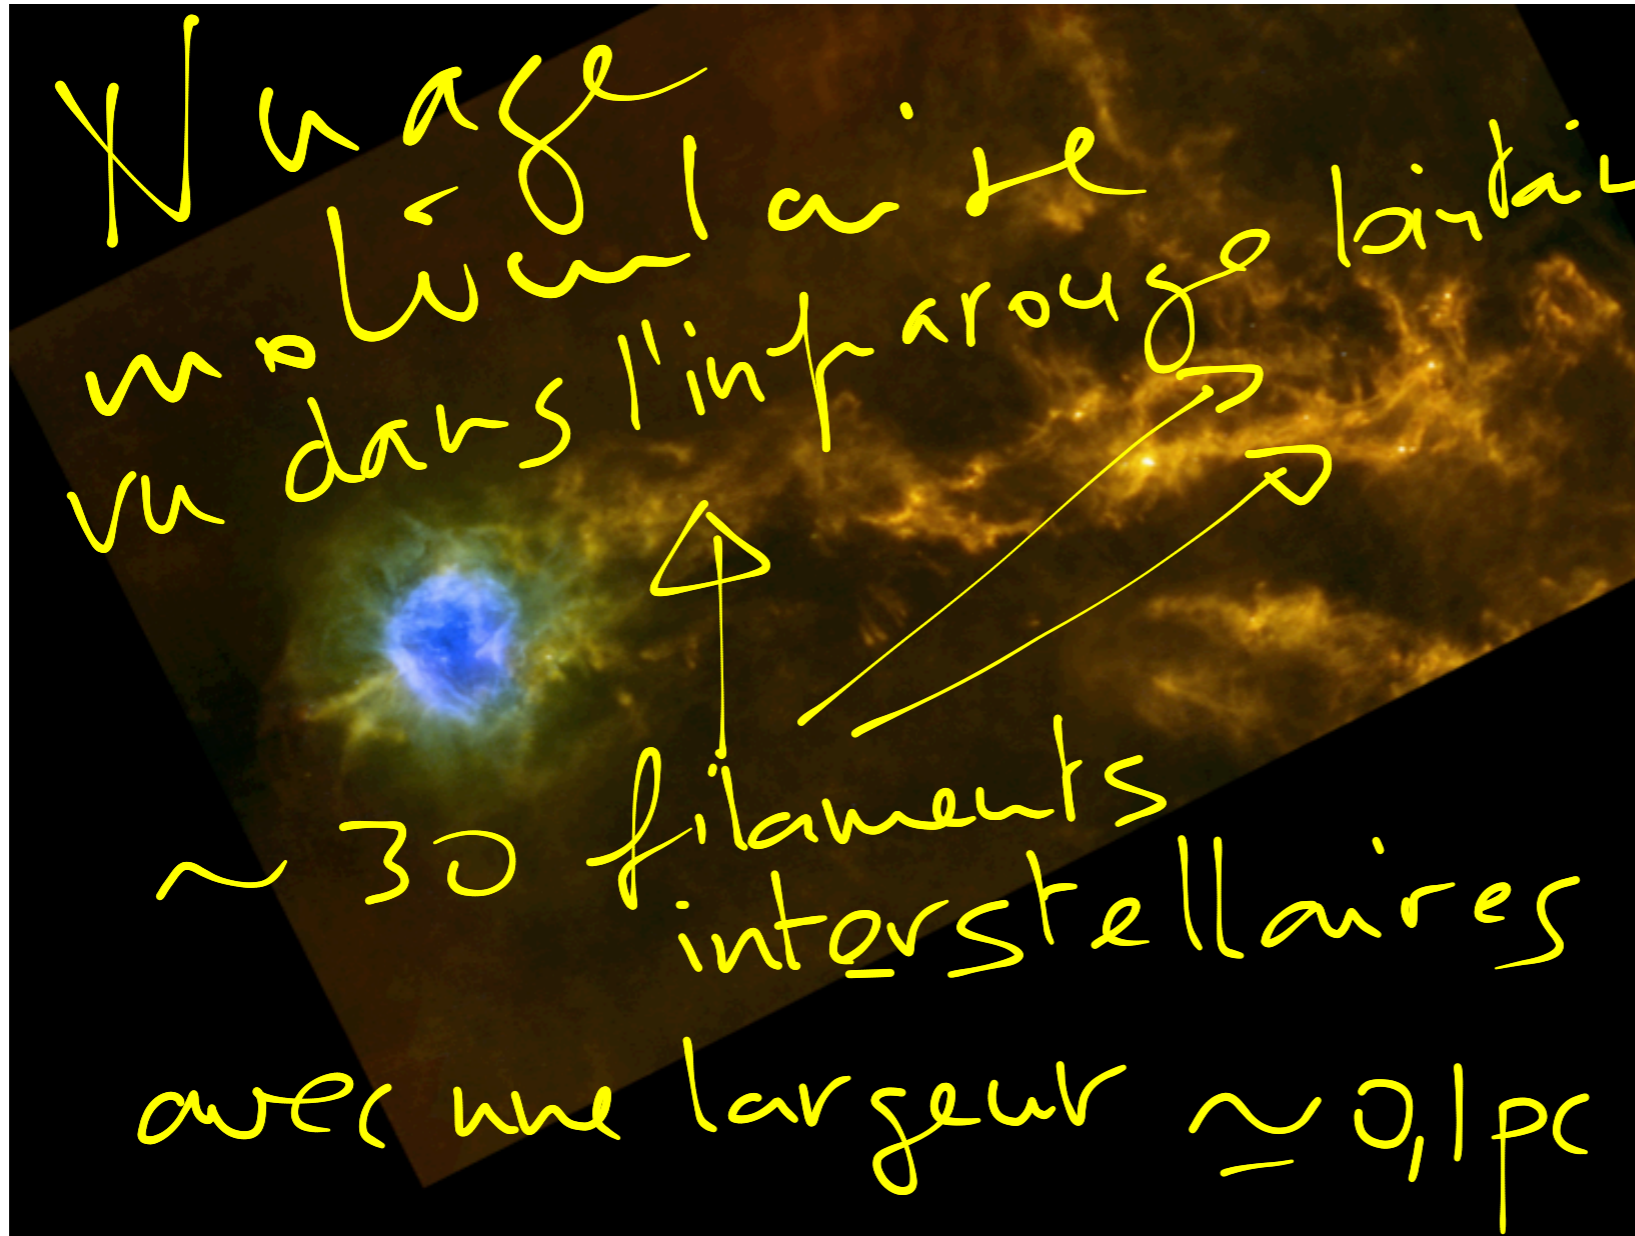 Nuage
moléculaire
vu dans l'infrarouge lointain
~ 30 filaments
interstellaires
avec une largeur ≃ 0,1 pc